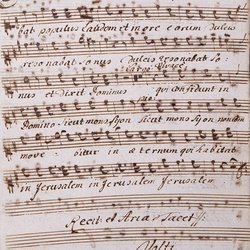 bat populus laudem et more eorum dulcis
resonabat sonus dulcis resonabat so:
nus et dixit Dominus qui confidunt in
Domino sicut mons Syon sicut mons Syon non com
move: bitur in æternum qui habitat
in Jerusalem in Jerusalem Jerusalem
Recit: et Aria tacet
Volti